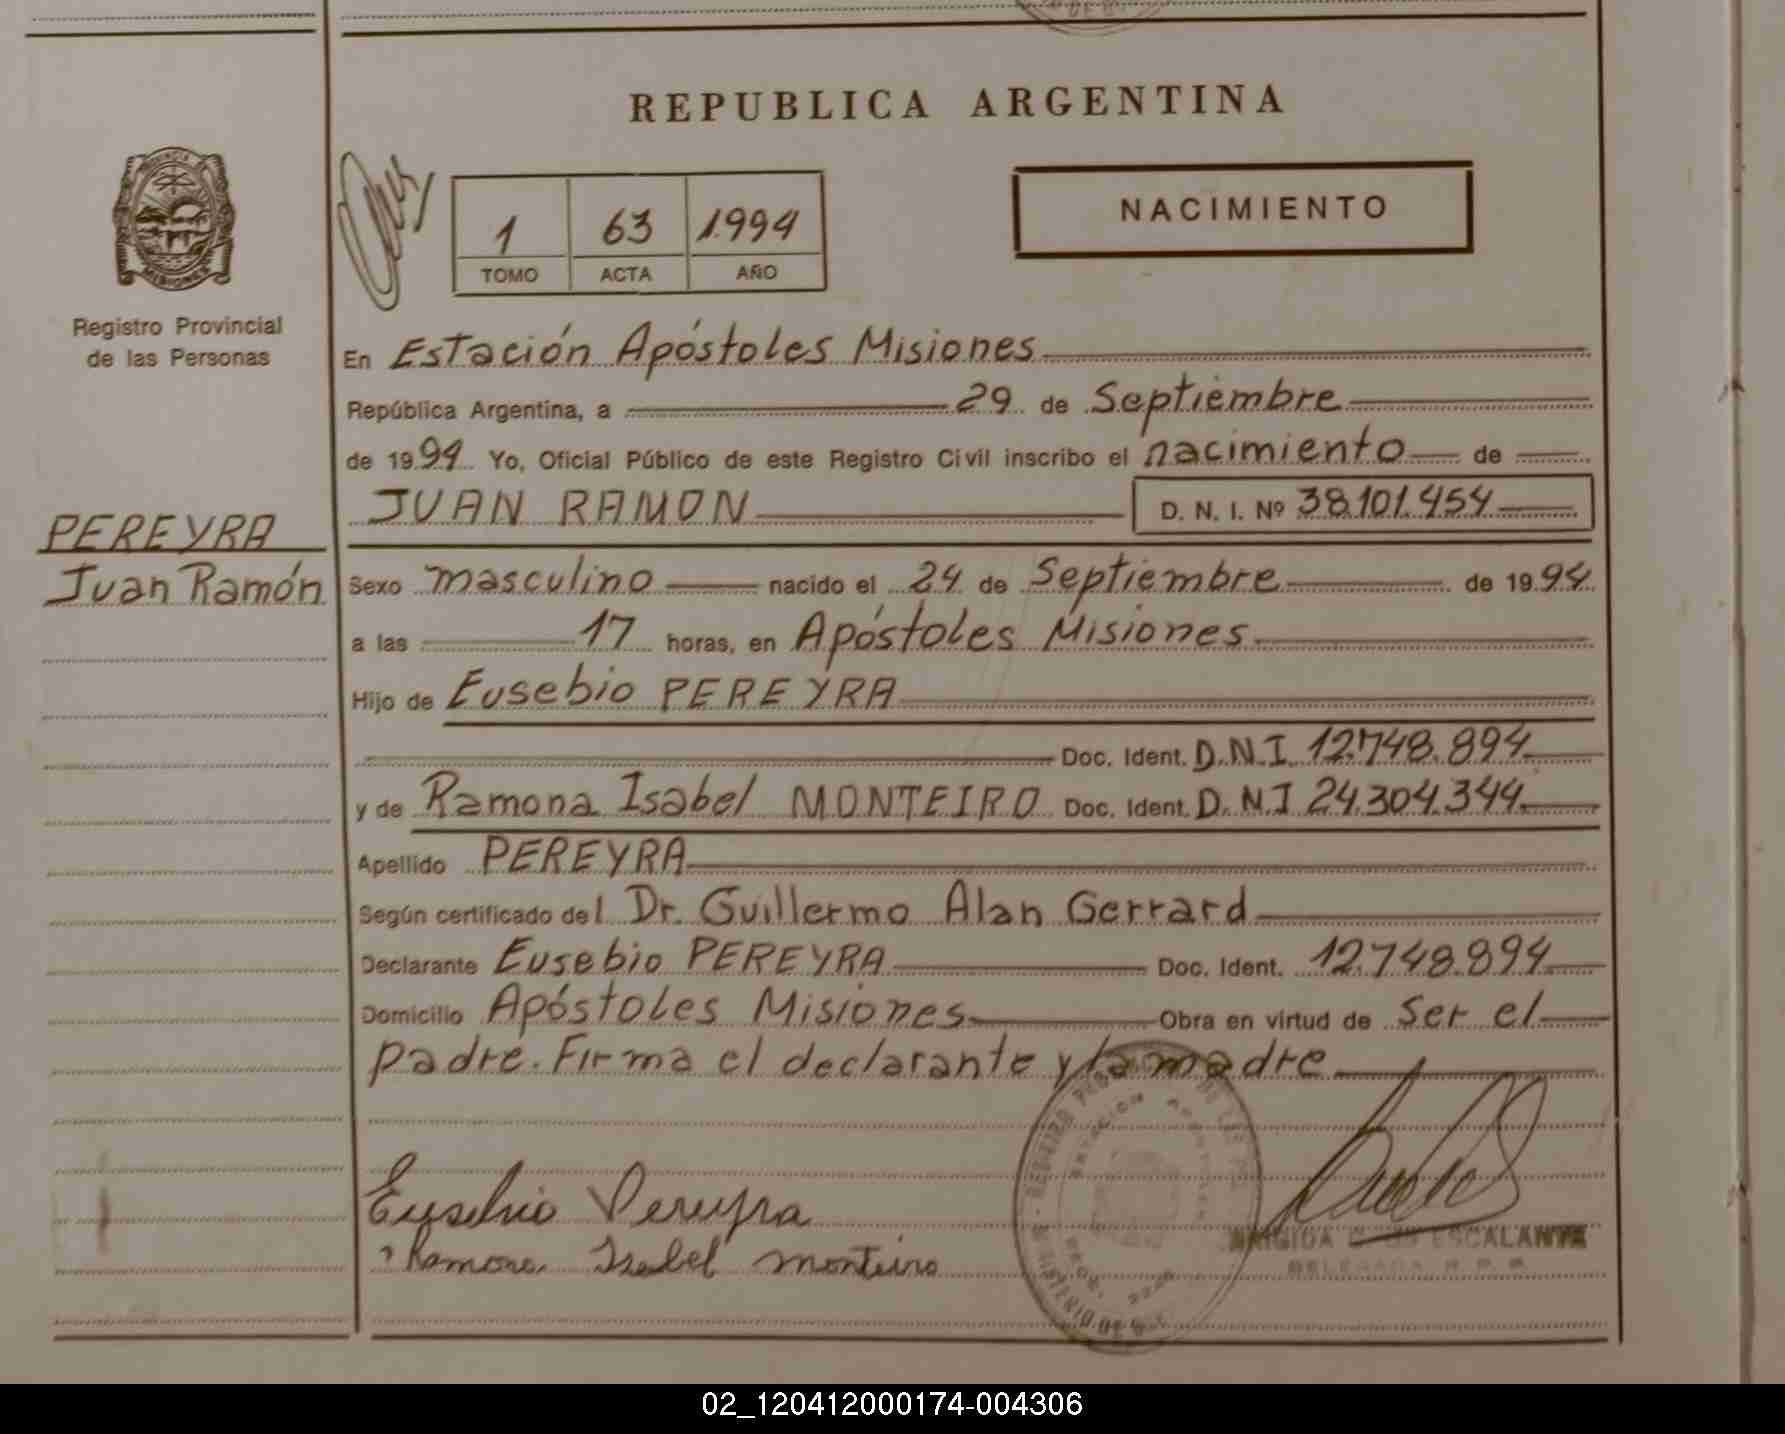 REPUBLICA ARGENTINA
MISIONES
Registro Provincial
de las Personas
PEREYRA
Juan Ramón
1 63 1994
TOMO ACTA AÑO
NACIMIENTO
En Estación Apóstoles Misiones
República Argentina, a 29 de Septiembre
de 1994 Yo, Oficial Público de este Registro Civil inscribo el nacimiento de
JUAN RAMON D. N. I. Nº 38.101.454
Sexo masculino nacido el 24 de Septiembre de 1994
a las 17 horas, en Apóstoles Misiones
Hijo de Eusebio PEREYRA
Doc. Ident. D.N.I 12.748.894
y de Ramona Isabel MONTEIRO Doc. Ident. D.N.I 24.304.344
Apellido PEREYRA
Según certificado del Dr. Guillermo Alan Gerrard
Declarante Eusebio PEREYRA Doc. Ident. 12.748.894
Domicilio Apóstoles Misiones Obra en virtud de ser el
padre. Firma el declarante y la madre
Eusebio Pereyra
Ramona Isabel Monteiro
ESCALANTE
DELEGADA R. P. P.
02_120412000174-004306